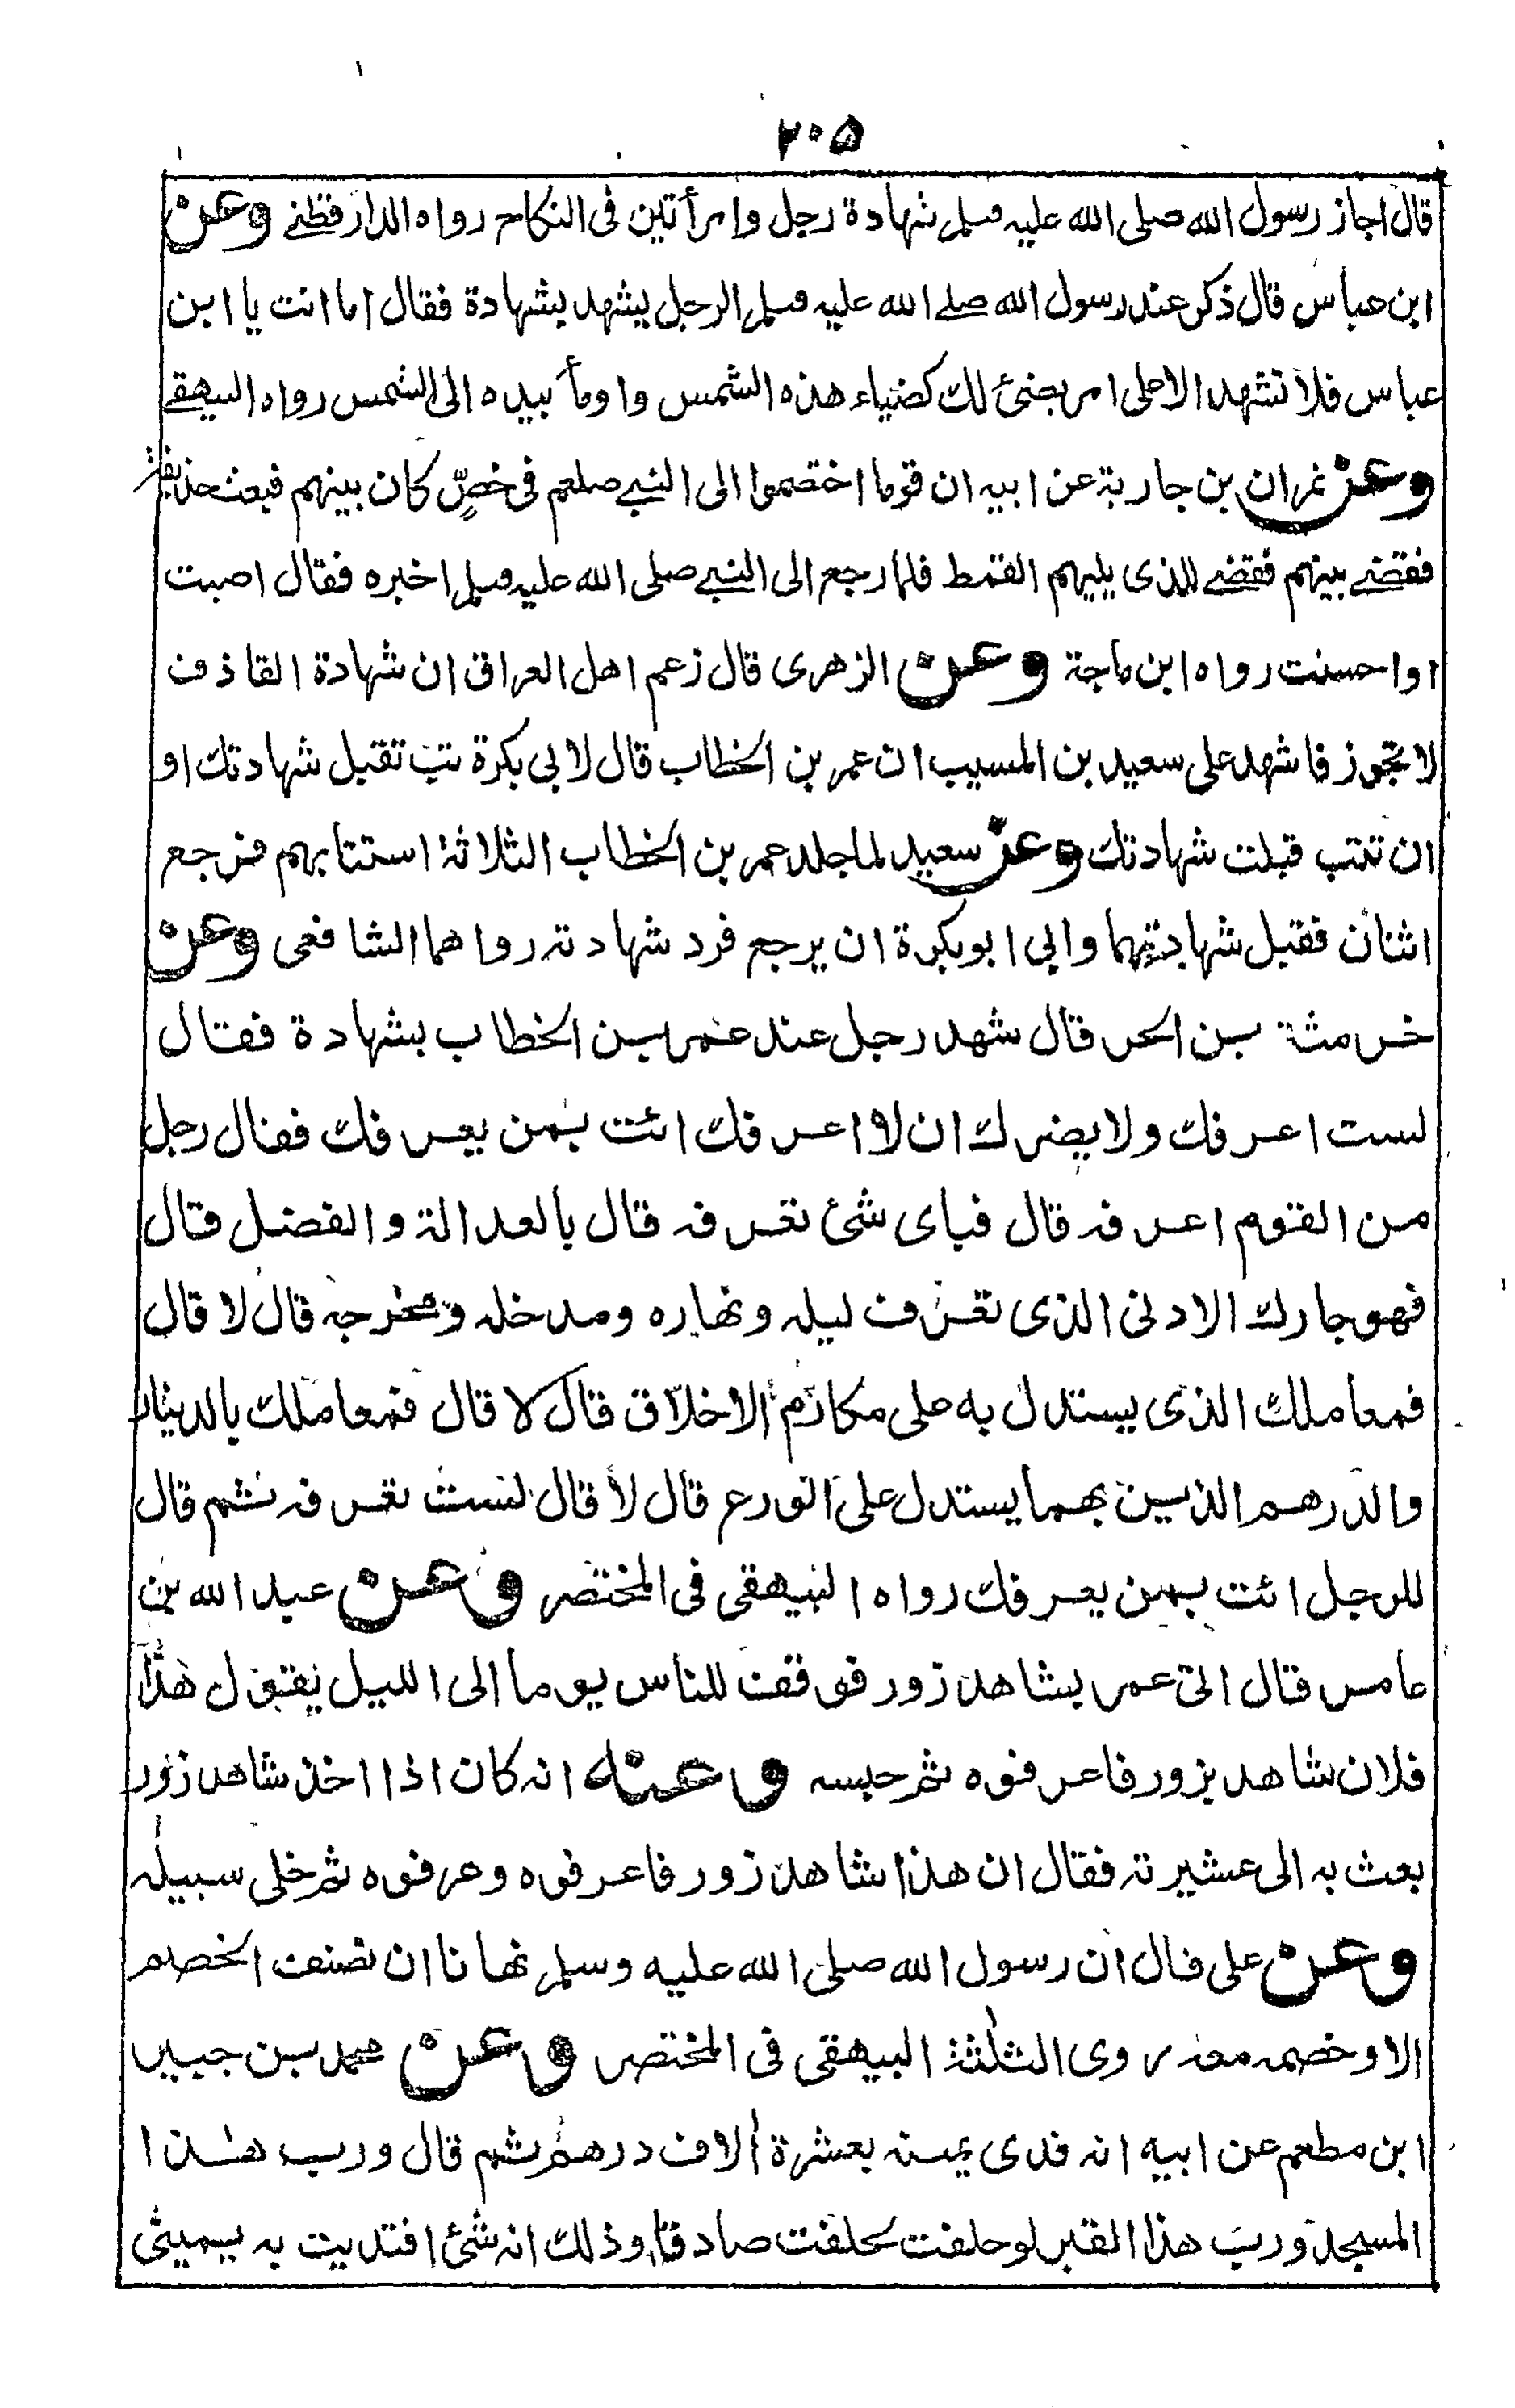 ٢٠٥
قال اجاز رسول الله صلى الله عليه وسلم شهادة رجل وامرأتين فى النكاح رواه الدارقطنے وعن
ابن عباس قال ذكر عند رسول الله صلے الله عليه وسلم الرجل يشهد بشهادة فقال اما انت يا ابن
عباس فلا تشهد الا على امر يضئ لك كضياء هذه الشمس واومأ بيده الى الشمس رواه البيهقے
وعن نمران بن جارية عن ابيه ان قوما اختصموا الى النبے صلعم فى خصٍّ كان بينهم فبعث حذيفة
فقضے بينهم فقضے للذى يليهم القمط فلما رجع الى النبے صلى الله عليه وسلم اخبره فقال اصبت
اواحسنت رواه ابن ماجة وعن الزهرى قال زعم اهل العراق ان شهادة القاذف
لا تجوز فاشهد على سعيد بن المسيب ان عمر بن الخطاب قال لابى بكرة تب تقبل شهادتك او
ان تتب قبلت شهادتك وعن سعيد لما جلد عمر بن الخطاب الثلاثة استتابهم فرجع
اثنان فقبل شهادتهما وابى ابوبكرة ان يرجع فرد شهادته رواهما الشافعى وعن
خرمثة بن الحر قال شهد رجل عند عمر بن الخطاب بشهادة فقال
لست اعرفك ولا يضرك ان لا اعرفك ائت بمن يعرفك فقال رجل
من القوم اعرفه قال فباى شئ تعرفه قال بالعدالة والفضل قال
فهو جارك الادنى الذى تعرف ليله ونهاره ومدخله ومخرجه قال لا قال
فمعاملك الذى يستدل به على مكارم الاخلاق قال لا قال فمعاملك بالدينار
والدرهم الذين بهما يستدل على الورع قال لا قال لست تعرفه ثم قال
للرجل ائت بمن يعرفك رواه البيهقى فى المختصر وعن عبد الله بن
عامر قال اتى عمر بشاهد زور فوقفت للناس يوما الى الليل يقول هذا
فلان شاهد بزور فاعرفوه ثم حبسه وعنه انه كان اذا اخذ شاهد زور
بعث به الى عشيرته فقال ان هذا شاهد زور فاعرفوه وعرفوه ثم خلى سبيله
وعن على قال ان رسول الله صلى الله عليه وسلم نهانا ان نضيف الخصم
الا وخصمه معه روى الثلثة البيهقى فى المختصر وعن محمد بن جبير
ابن مطعم عن ابيه انه فدى يمينه بعشرة آلاف درهم ثم قال ورب هذا
المسجد ورب هذا القبر لو حلفت لحلفت صادقا وذلك انه شئ افتديت به يمينى